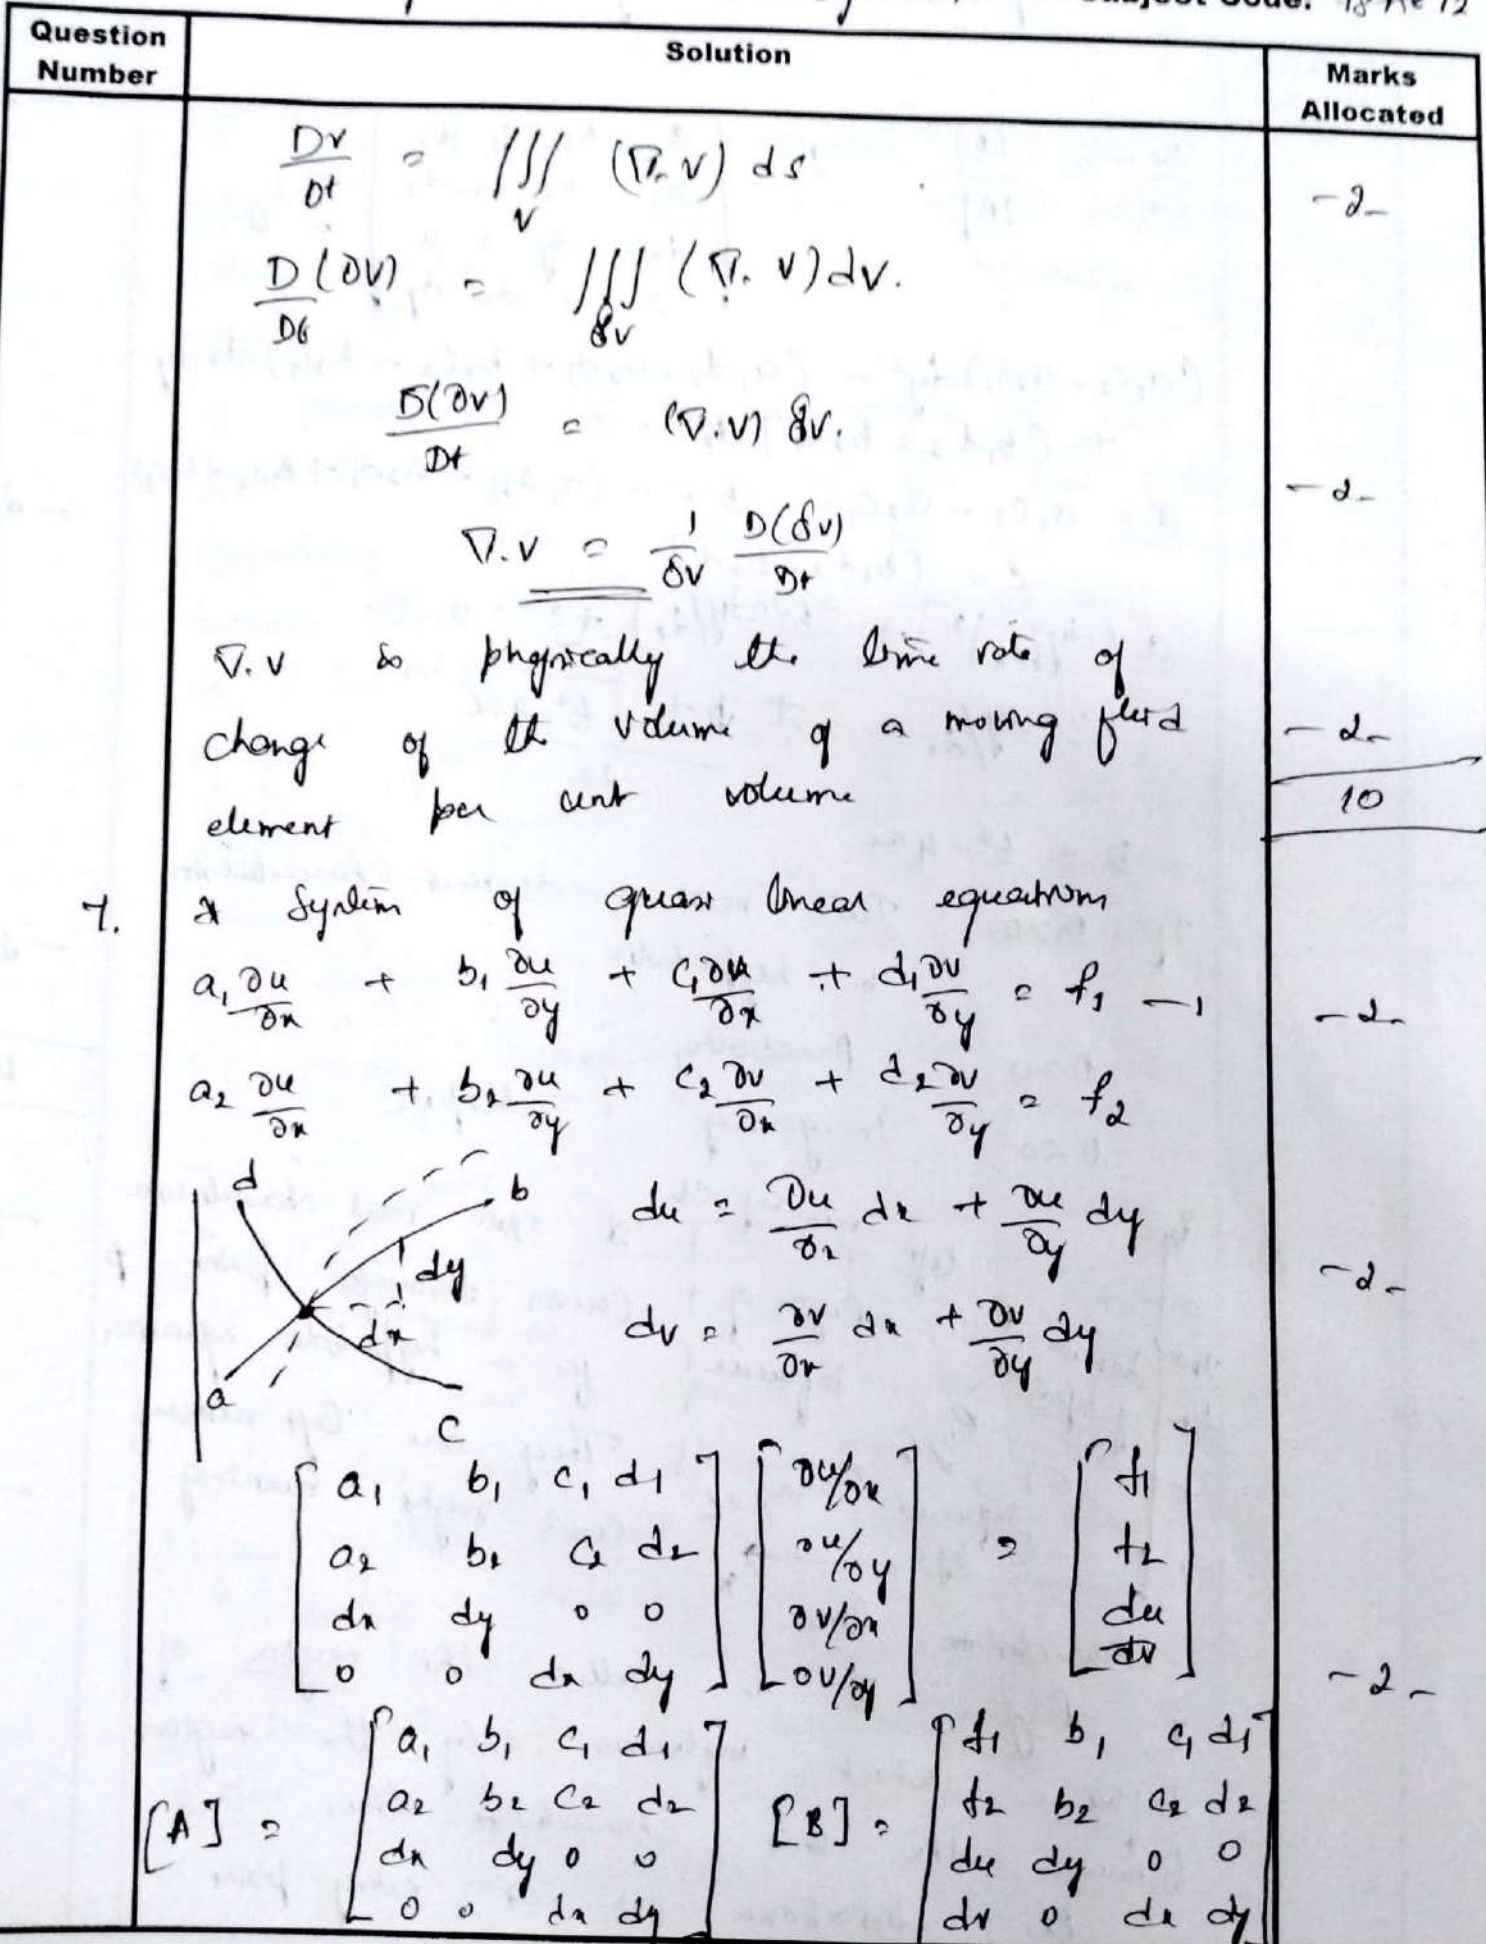 Subject Code:
Question Number
Solution
Marks Allocated
Dv/Dt = ∭_V (∇. v) ds -2-
D(∂V)/Dt = ∭_δv (∇. v) dv.
D(∂v)/Dt = (∇.v) δv. -2-
∇.v = 1/δv D(δv)/Dt
∇.v is physically the time rate of
change of the volume of a moving fluid -2-
element per unit volume 10
7. System of quasi linear equations
a₁ ∂u/∂x + b₁ ∂u/∂y + c₁ ∂v/∂x + d₁ ∂v/∂y = f₁ —1 -2-
a₂ ∂u/∂x + b₂ ∂u/∂y + c₂ ∂v/∂x + d₂ ∂v/∂y = f₂
d b
dy
dx
a
c
du = ∂u/∂x dx + ∂u/∂y dy -2-
dv = ∂v/∂x dx + ∂v/∂y dy
[ a₁ b₁ c₁ d₁ ] [ ∂u/∂x ] = [ f₁ ]
[ a₂ b₂ c₂ d₂ ] [ ∂u/∂y ] [ f₂ ]
[ dx dy 0 0 ] [ ∂v/∂x ] [ du ]
[ 0 0 dx dy ] [ ∂v/∂y ] [ dv ] -2-
[A] = [ a₁ b₁ c₁ d₁ ] [B] = [ f₁ b₁ c₁ d₁ ]
[ a₂ b₂ c₂ d₂ ] [ f₂ b₂ c₂ d₂ ]
[ dx dy 0 0 ] [ du dy 0 0 ]
[ 0 0 dx dy ] [ dv 0 dx dy ]